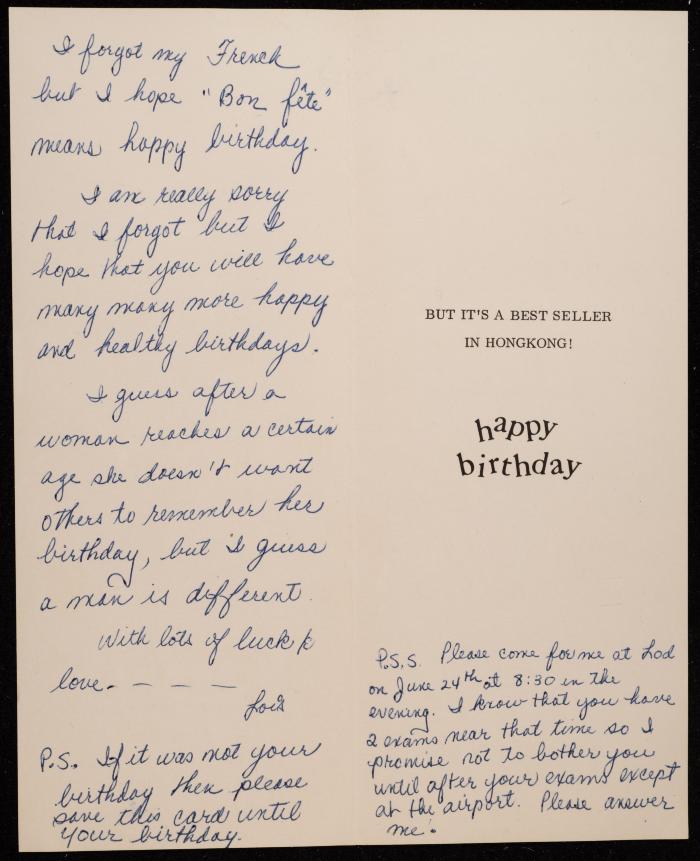 I forgot my French
but I hope "Bon fête"
means happy birthday.
I am really sorry
that I forgot but I
hope that you will have
many many more happy
and healthy birthdays.
I guess after a
woman reaches a certain
age she doesn't want
others to remember her
birthday, but I guess
a man is different.
With lots of luck &
love - - - -
Lois
P.S. If it was not your
birthday then please
save this card until
your birthday.
BUT IT'S A BEST SELLER
IN HONGKONG!
happy
birthday
P.S.S. Please come for me at Lod
on June 24th at 8:30 in the
evening. I know that you have
2 exams near that time so I
promise not to bother you
until after your exams except
at the airport. Please answer
me.